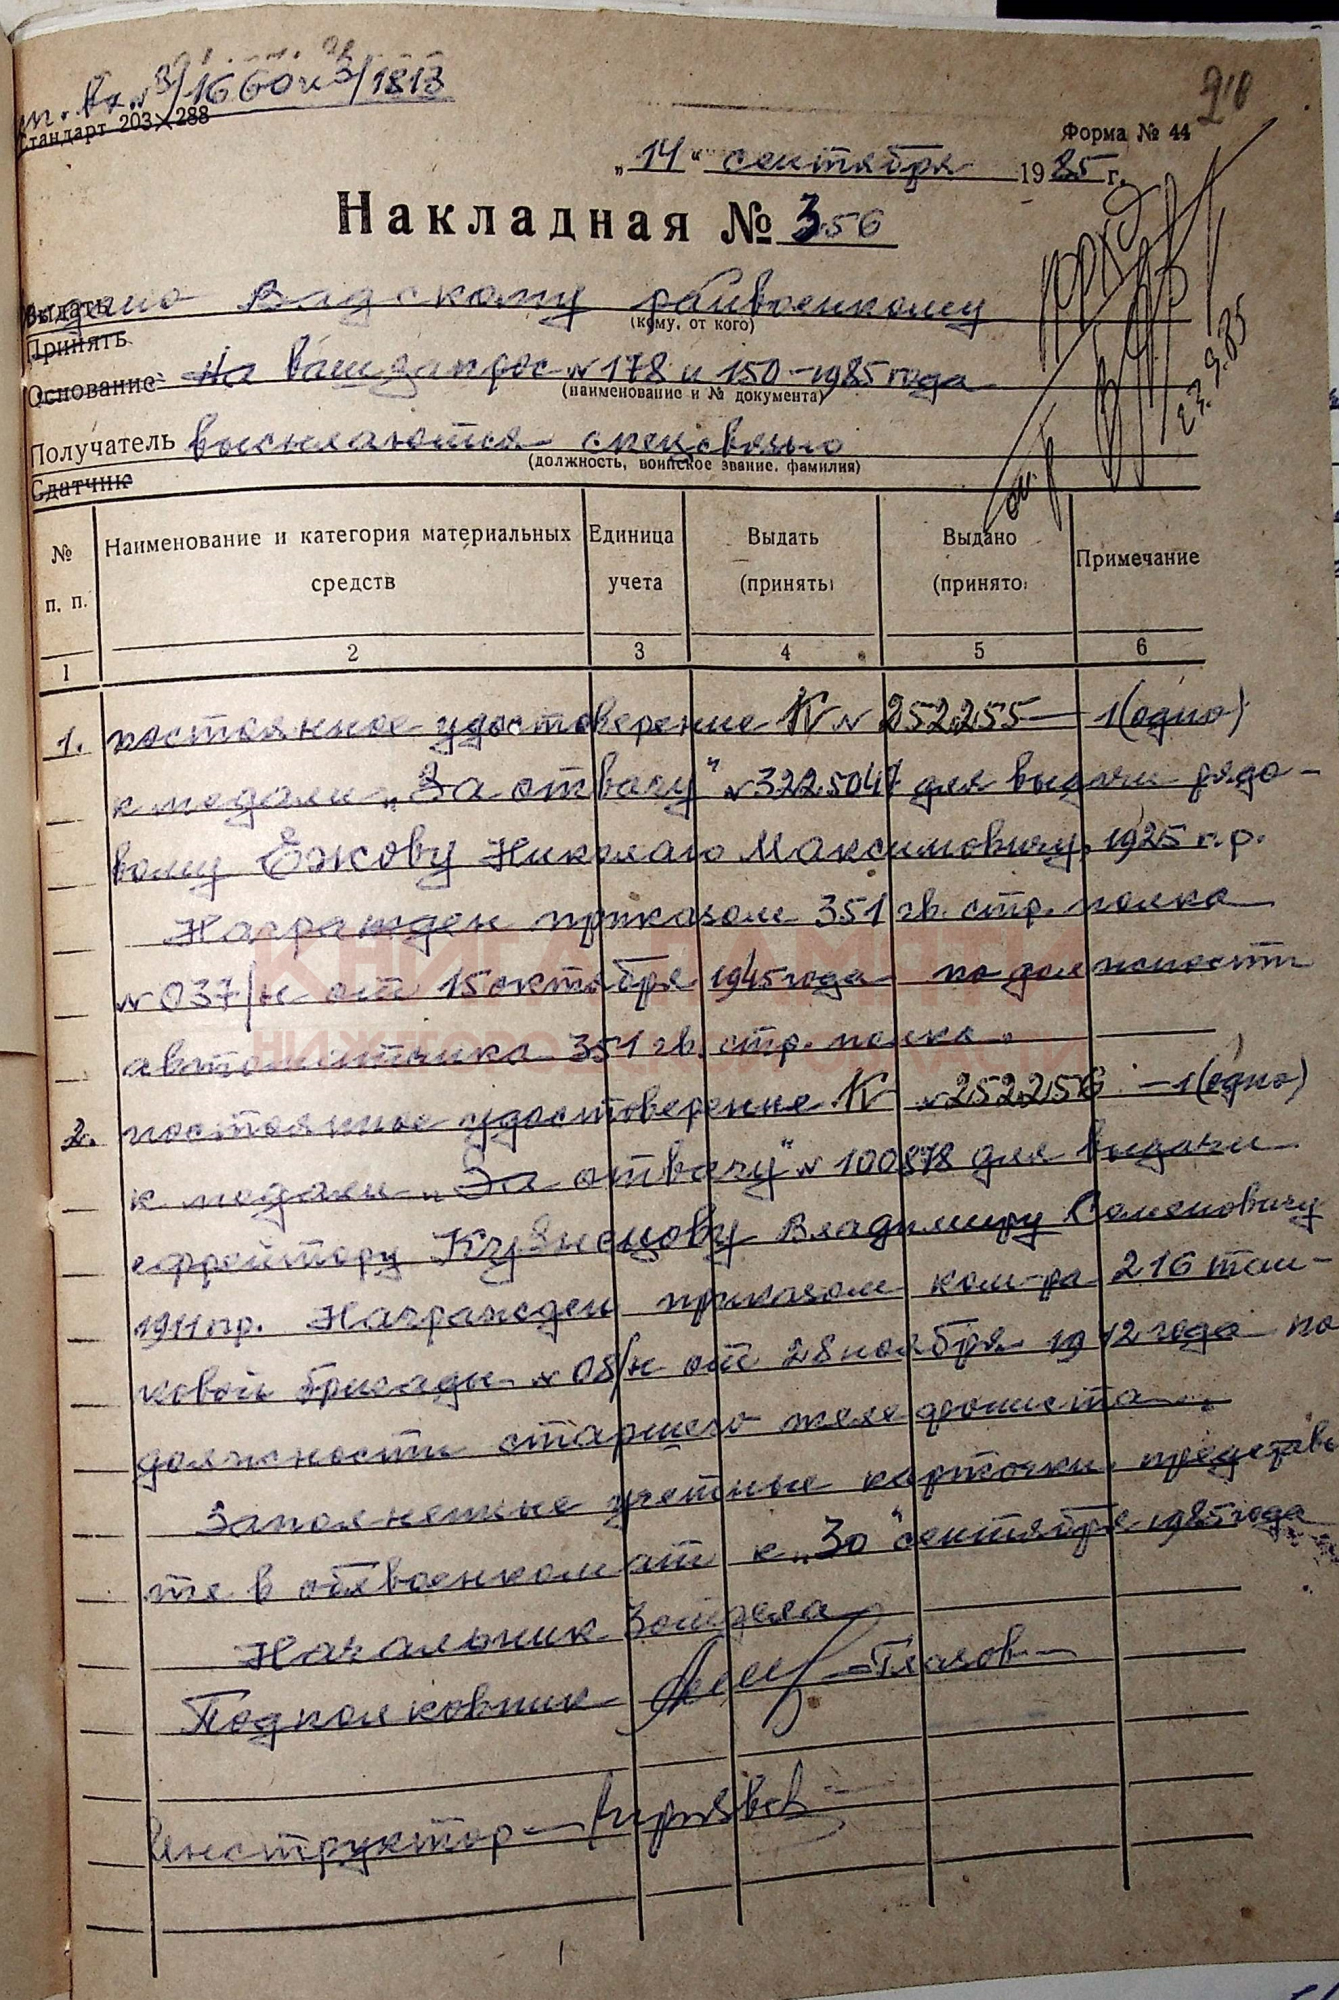 вх. №3/1660 и 3/1813
210
Стандарт 203×288
Форма № 44
„14“ сентября 1985 г.
Накладная № 356
Выдать Вадскому райвоенкому
Принять (кому, от кого)
Основание: На ваш запрос № 178 и 150-1985 года
(наименование и № документа)
Получатель высылаются спецсвязью
Сдатчик (должность, воинское звание, фамилия)
23.9.85
№ п. п. Наименование и категория материальных средств Единица учета Выдать (принять) Выдано (принято) Примечание
1 2 3 4 5 6
1. постоянное удостоверение К № 252255 — 1 (одно)
к медали „За отвагу“ № 3225047 для выдачи рядо-
вому Ежову Николаю Максимовичу, 1925 г.р.
Награжден приказом 351 гв. стр. полка
№ 037/н от 15 октября 1945 года по должности
автоматчика 351 гв. стр. полка.
КНИГА ПАМЯТИ
НИЖЕГОРОДСКОЙ ОБЛАСТИ
2. постоянное удостоверение К № 252256 — 1 (одно)
к медали „За отвагу“ № 100878 для выдачи
ефрейтору Кузнецову Владимиру Семеновичу
1911 гр. Награжден приказом ком-ра 216 тан-
ковой бригады № 08/н от 28 ноября 1942 года по
должности старшего
Заполненные учетные карточки представь
те в облвоенкомат к „30“ сентября 1985 года
Начальник 3 отдела
Подполковник — Глазов —
Инструктор —